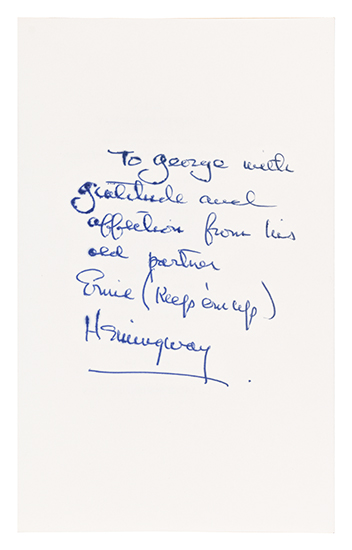 To george with
gratitude and
affection from his
old partner
Ernie (Keeps 'em up)
Hemingway